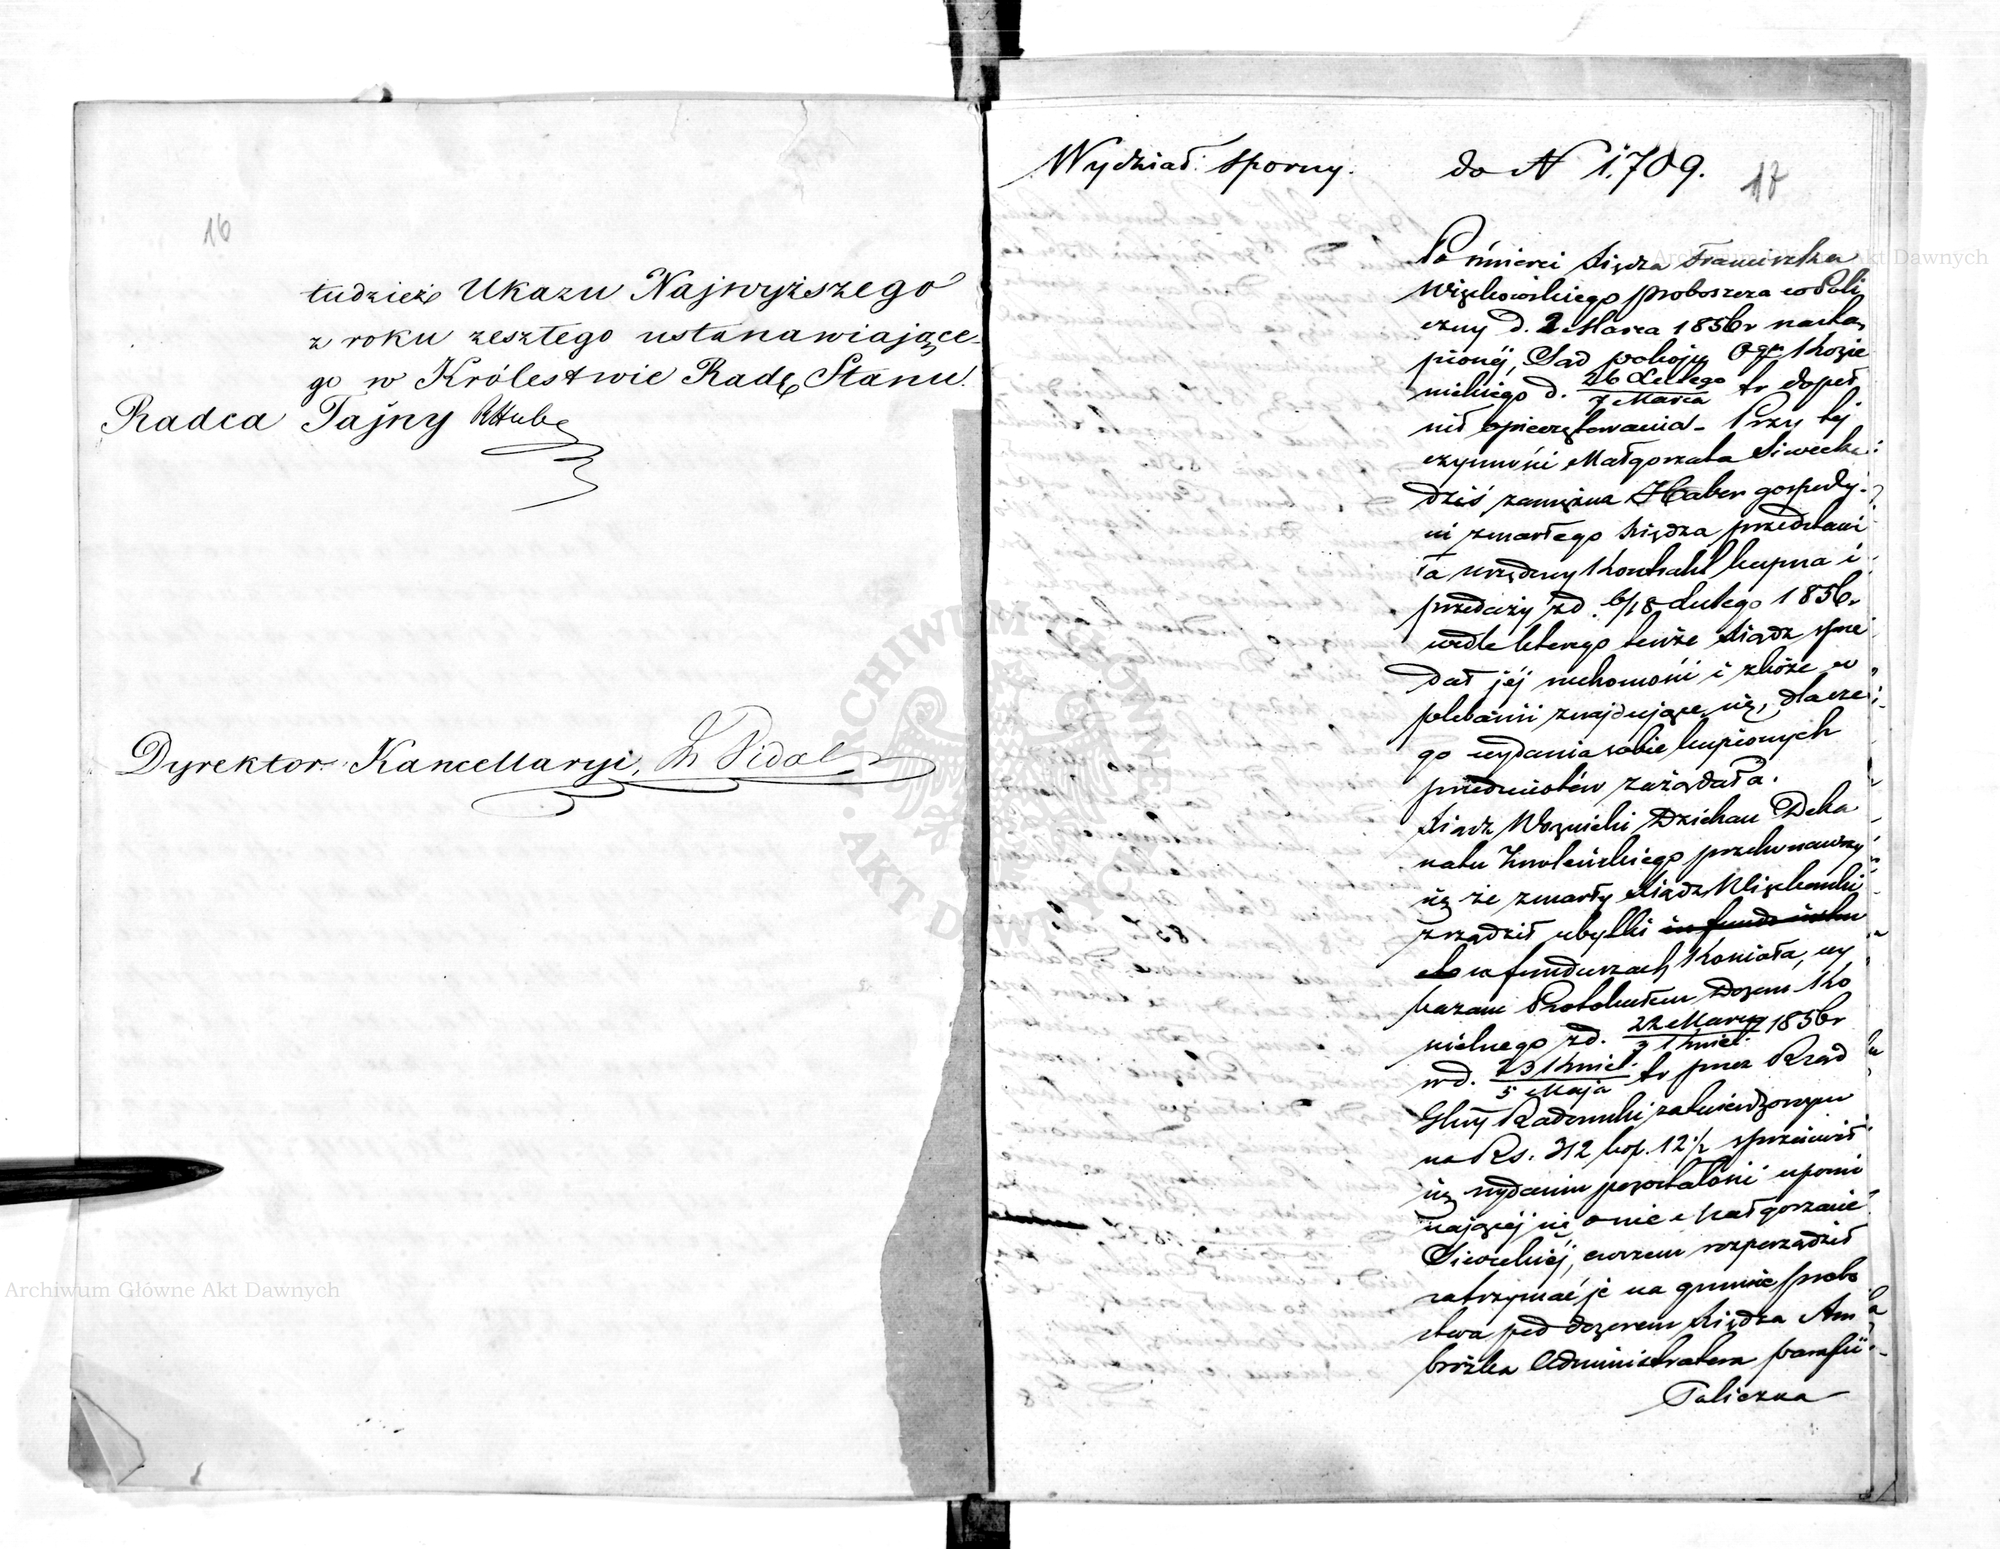 16
tudzież Ukazu Najwyższego
z roku zeszłego ustanawiające-
go w Królestwie Radę Stanu.
Radca Tajny RHube
Dyrektor Kancellaryi,
Wydział sporny.
do N 1,709.
17
Po śmierci Księdza Franciszka
Więckowskiego proboszcza w Poli
czny d. 2 Marca 1856 r nastą
pionéj, Sąd pokoju Ogu Kozie
nickiego d. 26 Lutego / 7 Marca tr dopeł
nił opieczętowania. Przy tej
czynności Małgorzata Siwecka
dziś zamężna Haber gospody-
ni zmarłego księdza przedstawi
ła urzędowy Kontrakt kupna i
przedaży z d. 6/18 Lutego 1856 r
wedle którego tenże Ksiądz sprze
dał jéj ruchomości i zboże w
plebanii znajdujące się, dlacze
go wydania sobie kupionych
przedmiotów zażądała.
Ksiądz Woźnicki Dziekan Deka
natu Zwoleńskiego przekonawszy
się że zmarły Ksiądz Więckowski
zrządził ubytki in fundo
w funduszach Kościoła, wy
kazane Protokułem Dozoru Ko
ścielnego z d. 22 Marca / 3 Kwiet. 1856 r
w d. 23 Kwiet. / 5 Maja tr przez Rząd
Gbny Radomski zatwierdzonym
na Rs. 312 kop. 12 1/2 sprzeciwił
się wydaniu pozostałości upomi
nającéj się o nie Małgorzacie
Siweckiéj, owszem rozporządził
zatrzymać je na gruncie probo
stwa pod dozorem Księdza Am
brożka Administratora parafii
Policzna
Archiwum Główne Akt Dawnych
Archiwum Główne Akt Dawnych
ARCHIWUM GŁÓWNE AKT DAWNYCH